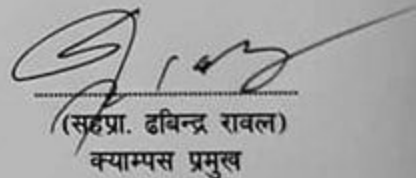 (सहप्रा. ढबिन्द्र रावल)
क्याम्पस प्रमुख